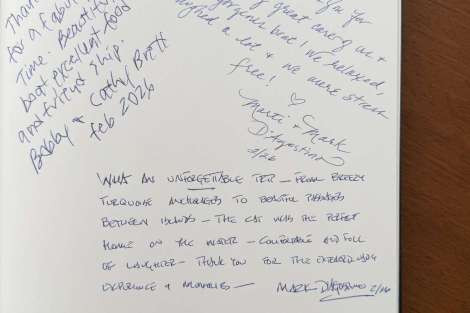 Thank
for a fabul
Time. Beautiful
boat excellent food
and friend ship
Bobby & Cathy Brett
feb 2026
you for
great care of us &
gorgeous boat! We relaxed,
laughed a lot & we were stress
free!
♡ Marti & Mark
D'Agostino
2/26
WHAT AN UNFORGETTABLE TRIP — FROM BREEZY
TURQUOISE ANCHORAGES TO BEAUTIFUL PASSAGES
BETWEEN ISLANDS — THE CAT WAS THE PERFECT
HOME ON THE WATER — COMFORTABLE AND FULL
OF LAUGHTER — THANK YOU FOR THE
EXPERIENCE & MEMORIES — MARK D'AGOSTINO 2/26